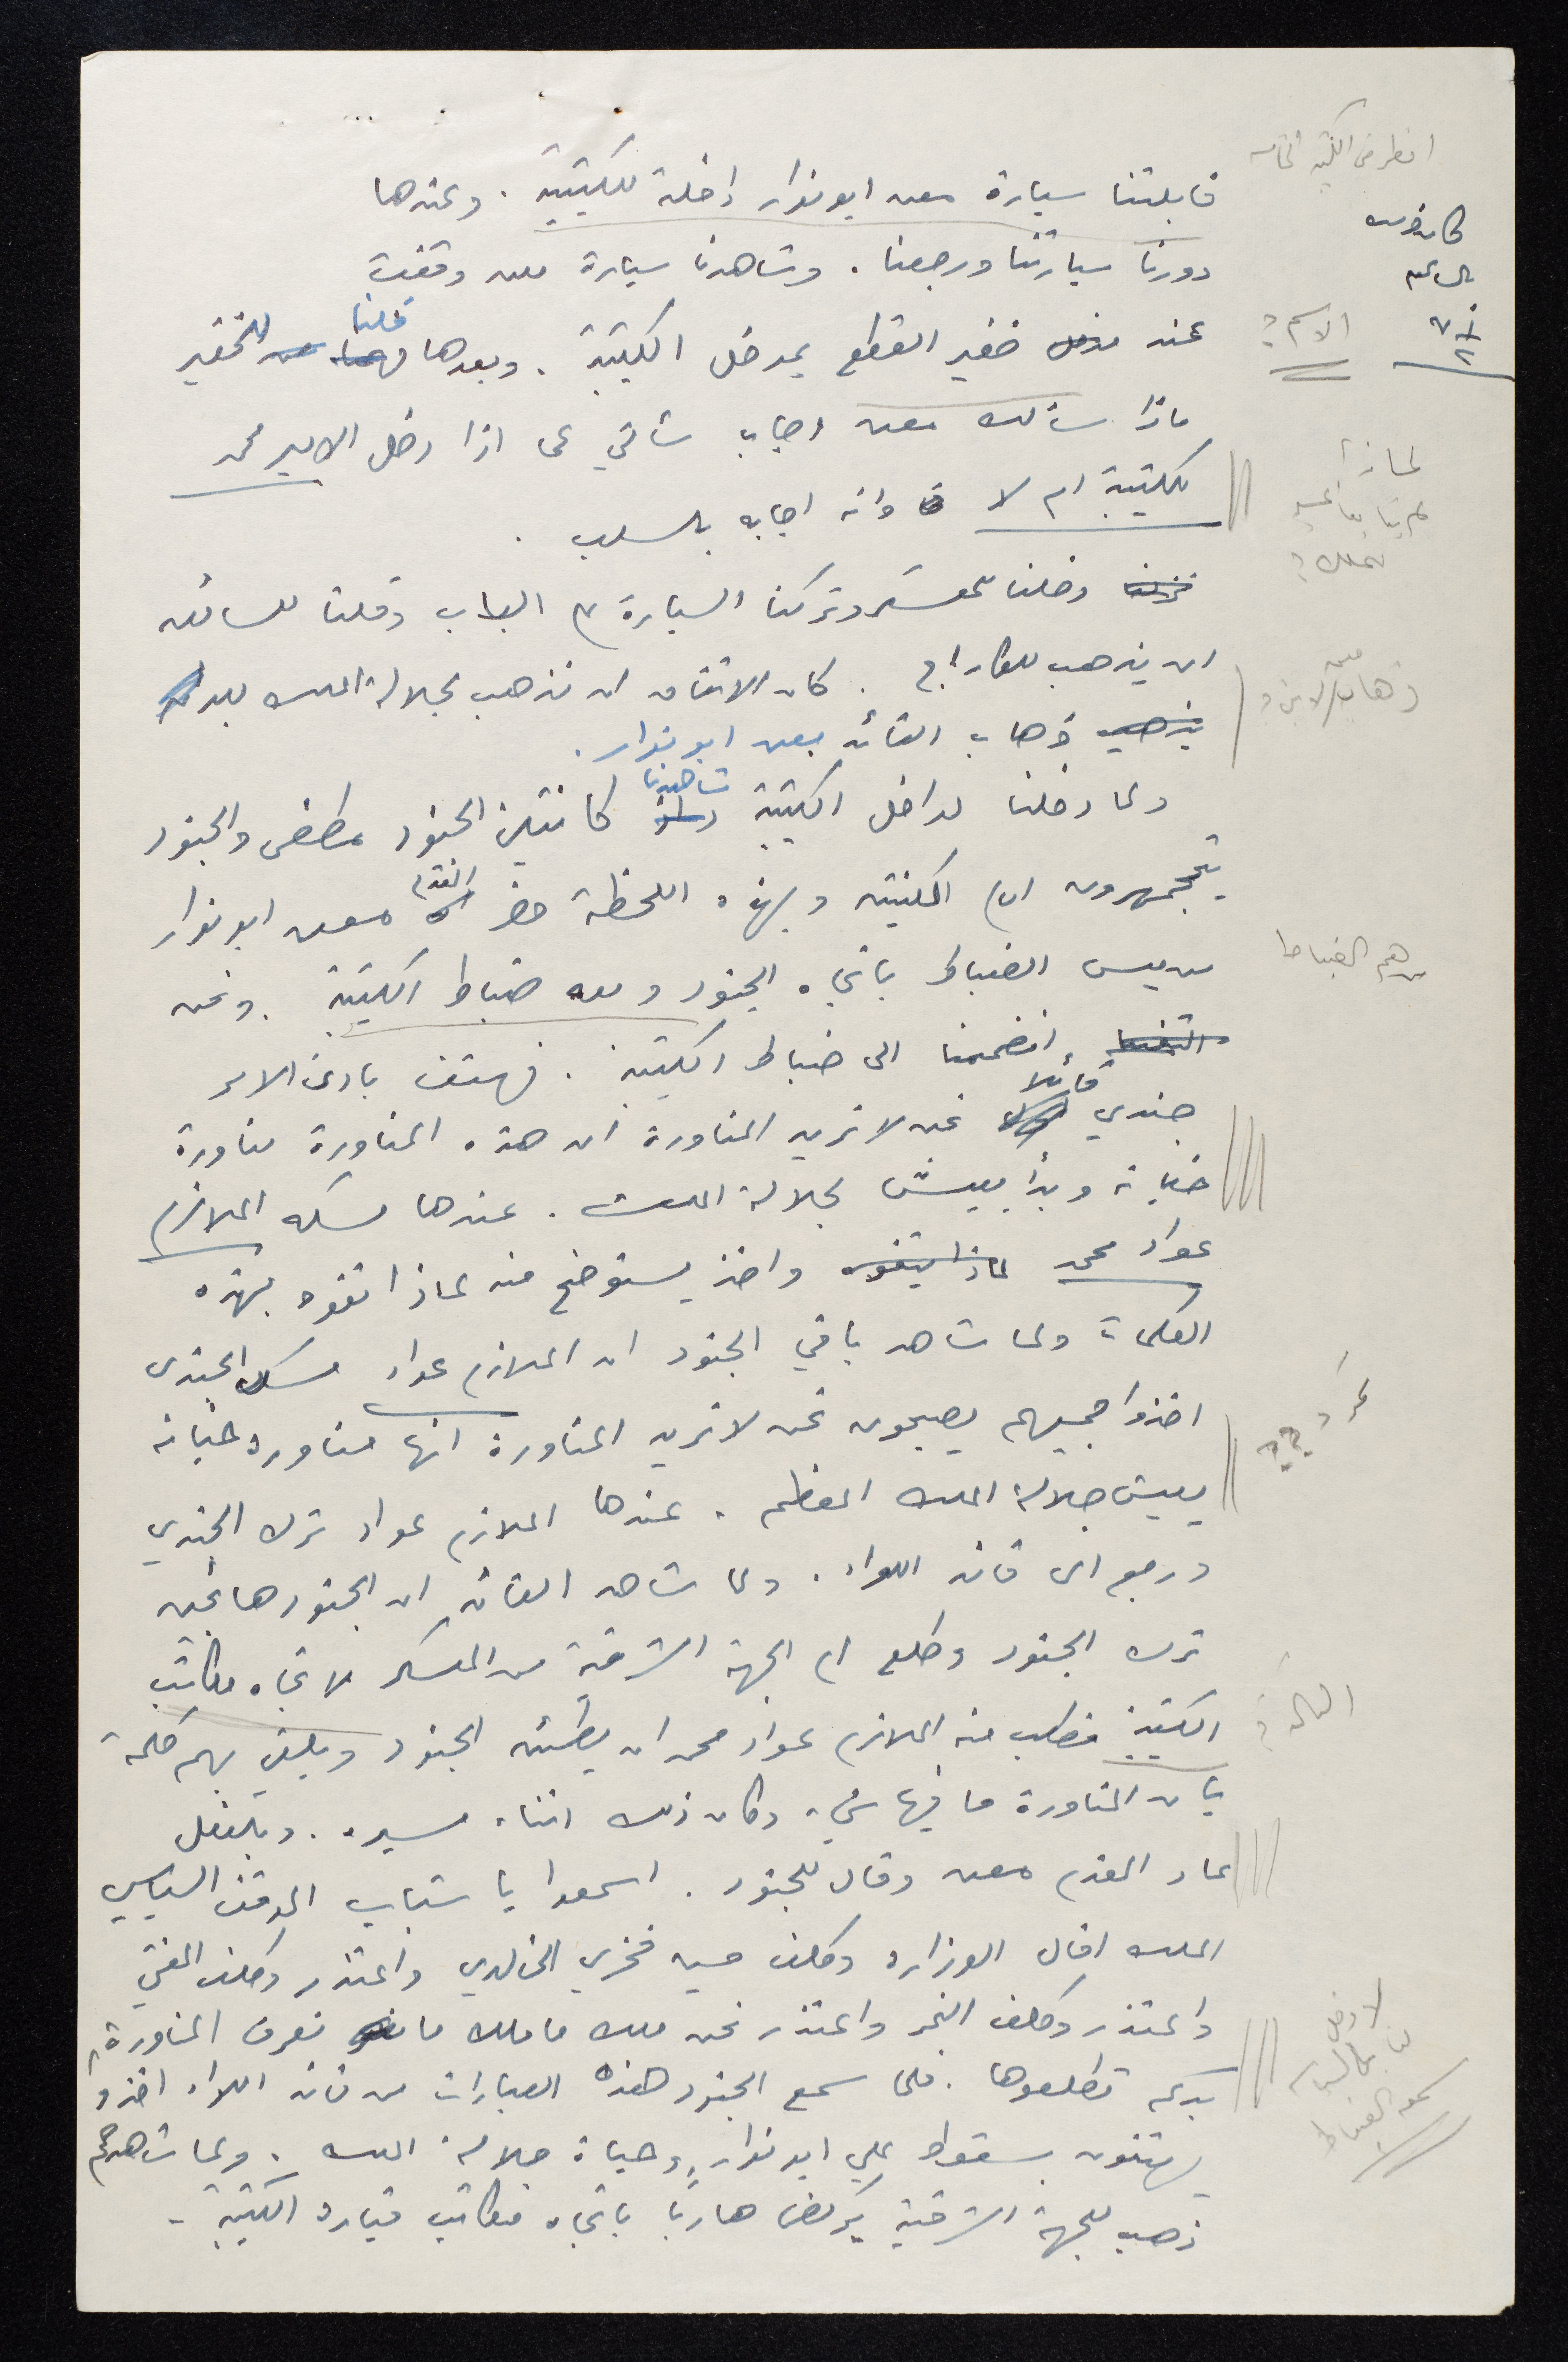 قابلتنا سيارة معن ابو نوار داخلة للكتيبة . وعندها
دورنا سيارتنا ورجعنا . وشاهدنا سيارة معن وقفت
عند خفير القطع بمدخل الكتيبة . وبعدها قلنا للخفير
ماذا سألك معن اجاب سألني عما اذا دخل الامير محمد
للكتيبة ام لا وانه اجابه بالسلب .
دخلنا المعسكر وتركنا السيارة البداب وقلنا للسائق
ان يذهب للكراج . كان الاتفاق ان نذهب لجلالة الملك بعد
ذهاب القائد معن ابو نوار .
ولما دخلنا لداخل الكتيبة شاهدنا كانتين الجنود مطفى والجنود
يتجمهرون امام الكنتين وبهذه اللحظة حضر المقدم معن ابو نوار
من ميس الضباط باتجاه الجنود ومعه ضباط الكتيبة . ونحن
انضممنا الى ضباط الكتيبة . فهتف بادئ الامر
جندي قائلا نحن لا نريد المناورة ان هذه المناورة مناورة
خيانة وبدأ يعيش لجلالة الملك . عندها مسكه الملازم
عواد محمد لماذا يتفوه واخذ يستوضح منه لماذا تفوه بهذه
الكلمات ولما شاهد باقي الجنود ان الملازم عواد مسك الجندي
اخذوا جميعهم يصيحون نحن لا نريد المناورة انها مناورة خيانة
يعيش جلالة الملك المعظم . عندها الملازم عواد ترك الجندي
ورجع الى قائد اللواء . ولما شاهد القائد ان الجنود هائجين
ترك الجنود وطلع الجهة الشرقية من المعسكر لاتجاه مكاتب
الكتيبة فطلب منه الملازم عواد محمد ان يطمئن الجنود ويلقي بهم كلمة
بان المناورة ما فيها شيء وكان ذلك اثناء مسيره . وبالفعل
عاد المقدم معن وقال للجنود . اسمعوا يا شباب الموقف السياسي
الملك اقال الوزاره وكلف حسين فخري الخالدي واعتذر وكلف المفتي
واعتذر وكلف النمر واعتذر نحن ملك ما ملك ما نعرف المناورة
بدكم تطلعوها . فلما سمع الجنود هذه العبارات من قائد اللواء اخذوا
يهتفون بسقوط علي ابو نوار وحياة جلالة الملك . ولما شاهدهم
ذهب للجهة الشرقية يركض هاربا باتجاه مكاتب قيادة الكتيبة -
كان
الساعه
الاسم ؟
لماذا
من هم الضباط